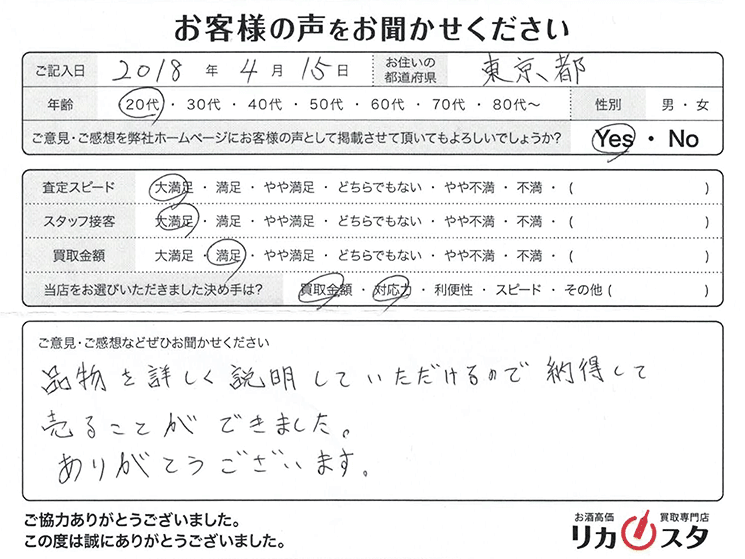 お客様の声をお聞かせください
ご記入日 2018 年 4 月 15 日 お住いの都道府県 東京都
年齢 20代・30代・40代・50代・60代・70代・80代〜 性別 男・女
ご意見・ご感想を弊社ホームページにお客様の声として掲載させて頂いてもよろしいでしょうか? Yes・No
査定スピード 大満足・満足・やや満足・どちらでもない・やや不満・不満・( )
スタッフ接客 大満足・満足・やや満足・どちらでもない・やや不満・不満・( )
買取金額 大満足・満足・やや満足・どちらでもない・やや不満・不満・( )
当店をお選びいただきました決め手は? 買取金額・対応力・利便性・スピード・その他( )
ご意見・ご感想などぜひお聞かせください
品物を詳しく説明していただけるので納得して
売ることができました。
ありがとうございます。
ご協力ありがとうございました。
この度は誠にありがとうございました。
お酒高価 買取専門店
リカスタ